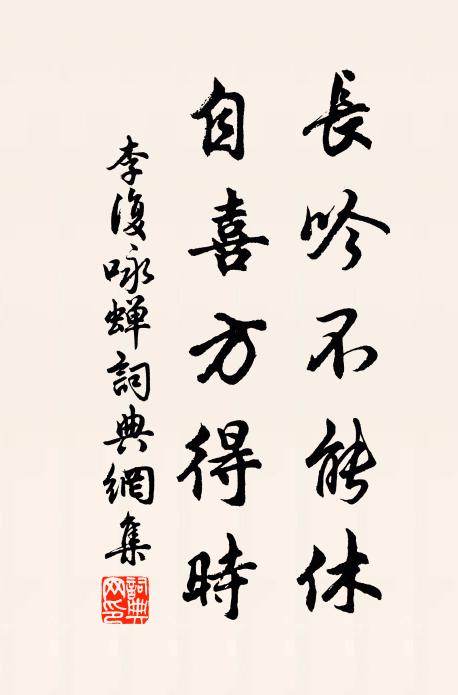 長吟不能休
自喜方得時
李復咏蝉詞典網集
詞典网印